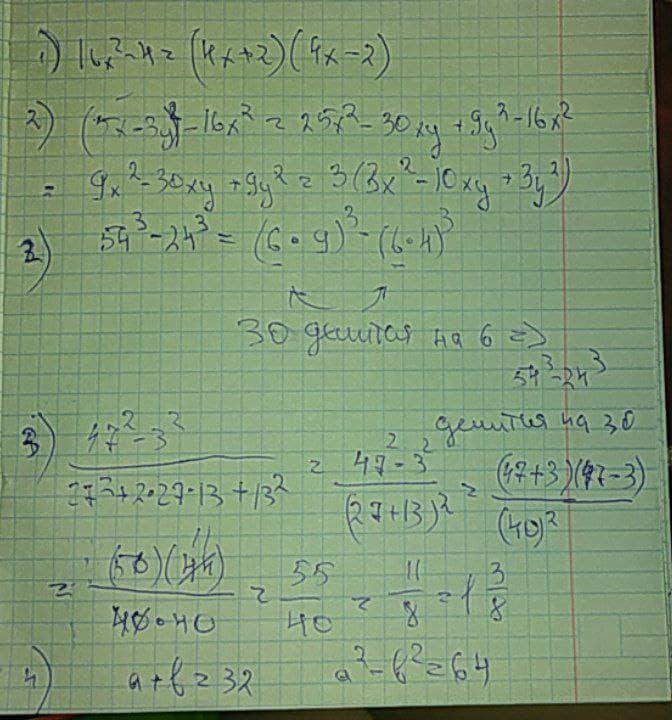 1) 16x² - 4 = (4x+2)(4x-2)
2) (5x-3y)² - 16x² = 25x² - 30xy + 9y² - 16x²
= 9x² - 30xy + 9y² = 3(3x² - 10xy + 3y²)
2) 54³ - 24³ = (6·9)³ - (6·4)³
30 делится на 6 =>
54³ - 24³
делится на 30
3) 47² - 3² / 27² + 2·27·13 + 13² = 47² - 3² / (27+13)² = (47+3)(47-3) / (40)²
= (50)(44) 11 / 40·40 = 55/40 = 11/8 = 1 3/8
4) a + b = 32 a² - b² = 64